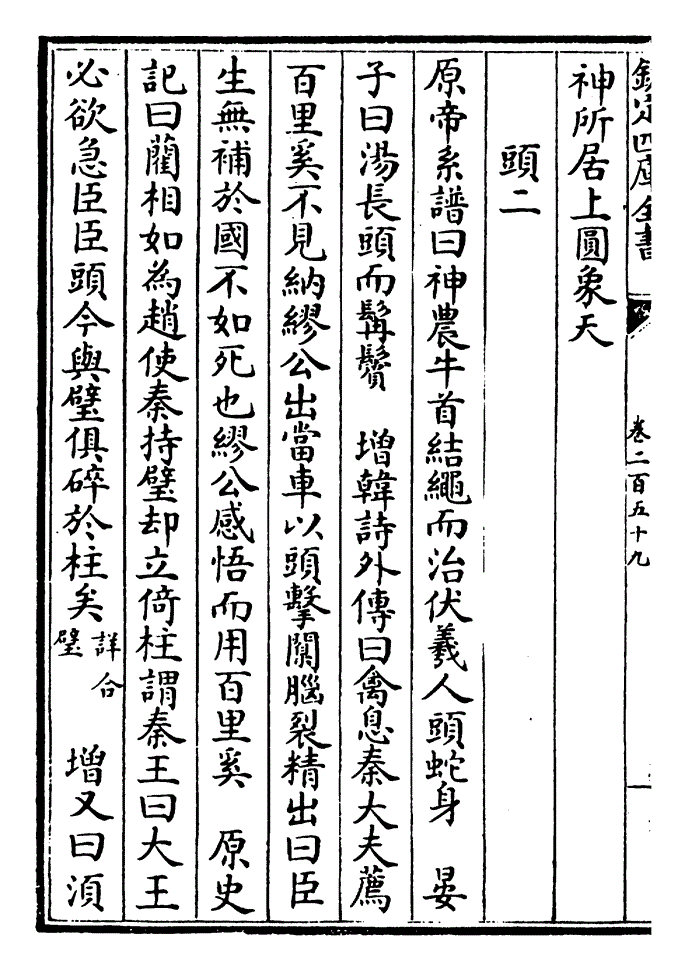 欽定四庫全書
卷二百五十九
神所居上圓象天
頭二
原帝系譜曰神農牛首結繩而治伏羲人頭蛇身　晏
子曰湯長頭而髯鬢　增韓詩外傳曰禽息秦大夫薦
百里奚不見納繆公出當車以頭擊闑腦裂精出曰臣
生無補於國不如死也繆公感悟而用百里奚　原史
記曰藺相如為趙使秦持璧却立倚柱謂秦王曰大王
必欲急臣臣頭今與璧俱碎於柱矣詳合璧　增又曰須